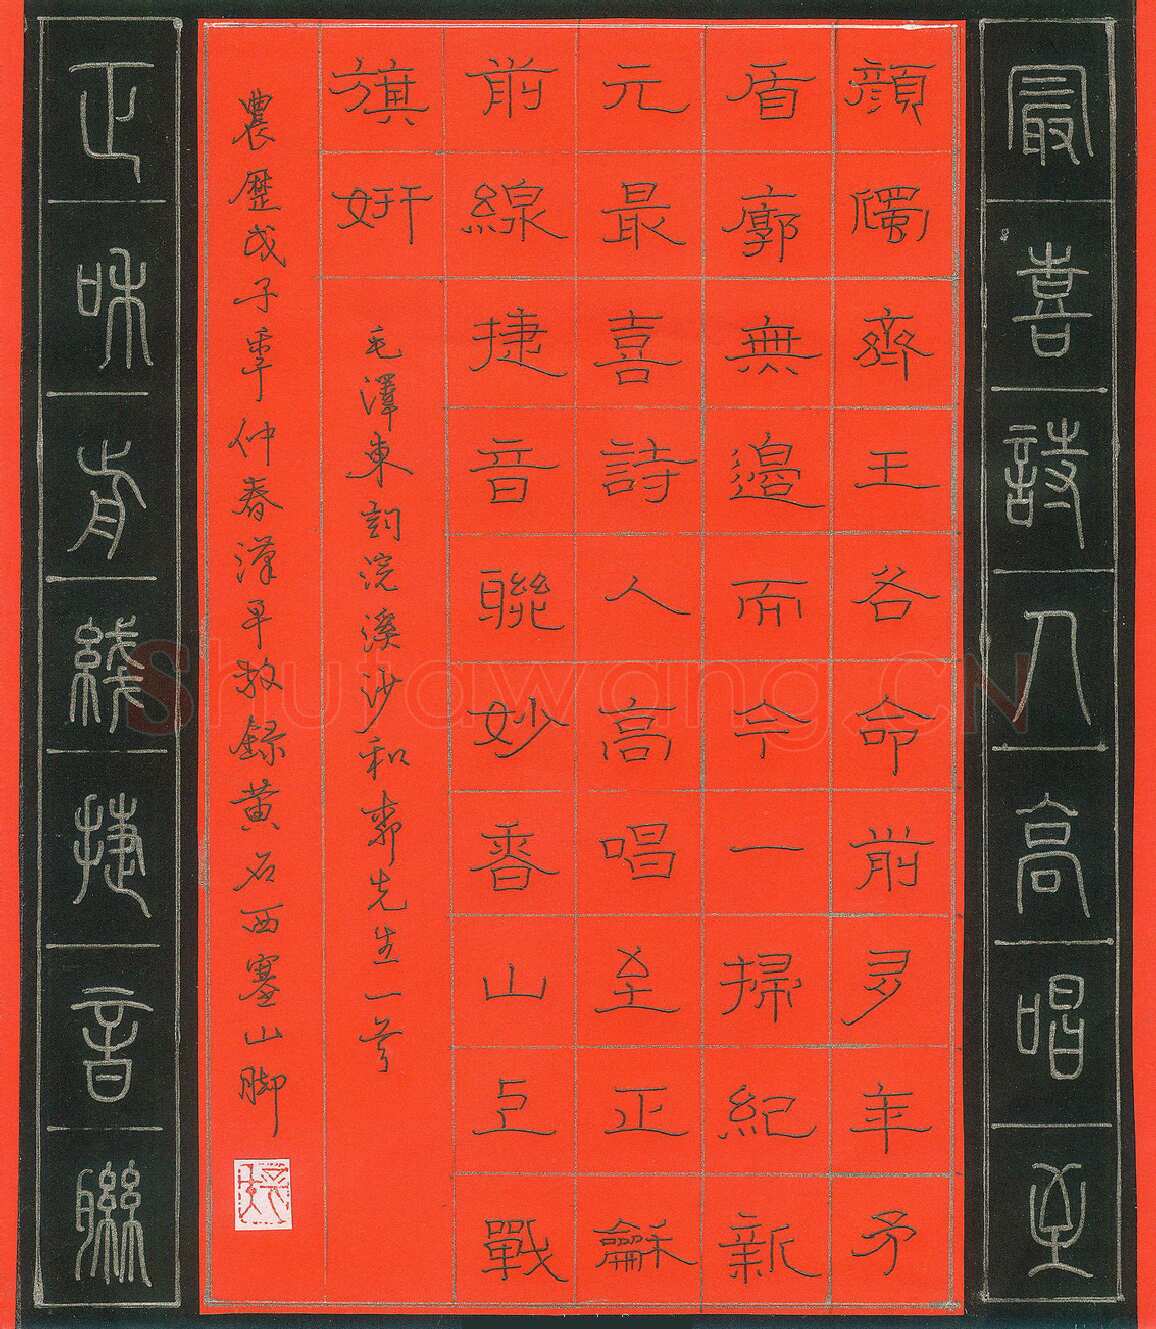 最喜詩人高唱至
顔斶齊王各命前多年矛
盾廓無邊而今一掃紀新
元最喜詩人高唱至正龢
前線捷音聯妙香山上戰
旗妍
毛澤東詞浣溪沙和郭先生一首
農歷戊子年仲春漢平敬録黄石西塞山脚
正和前綫捷音聯
Shufawang.CN